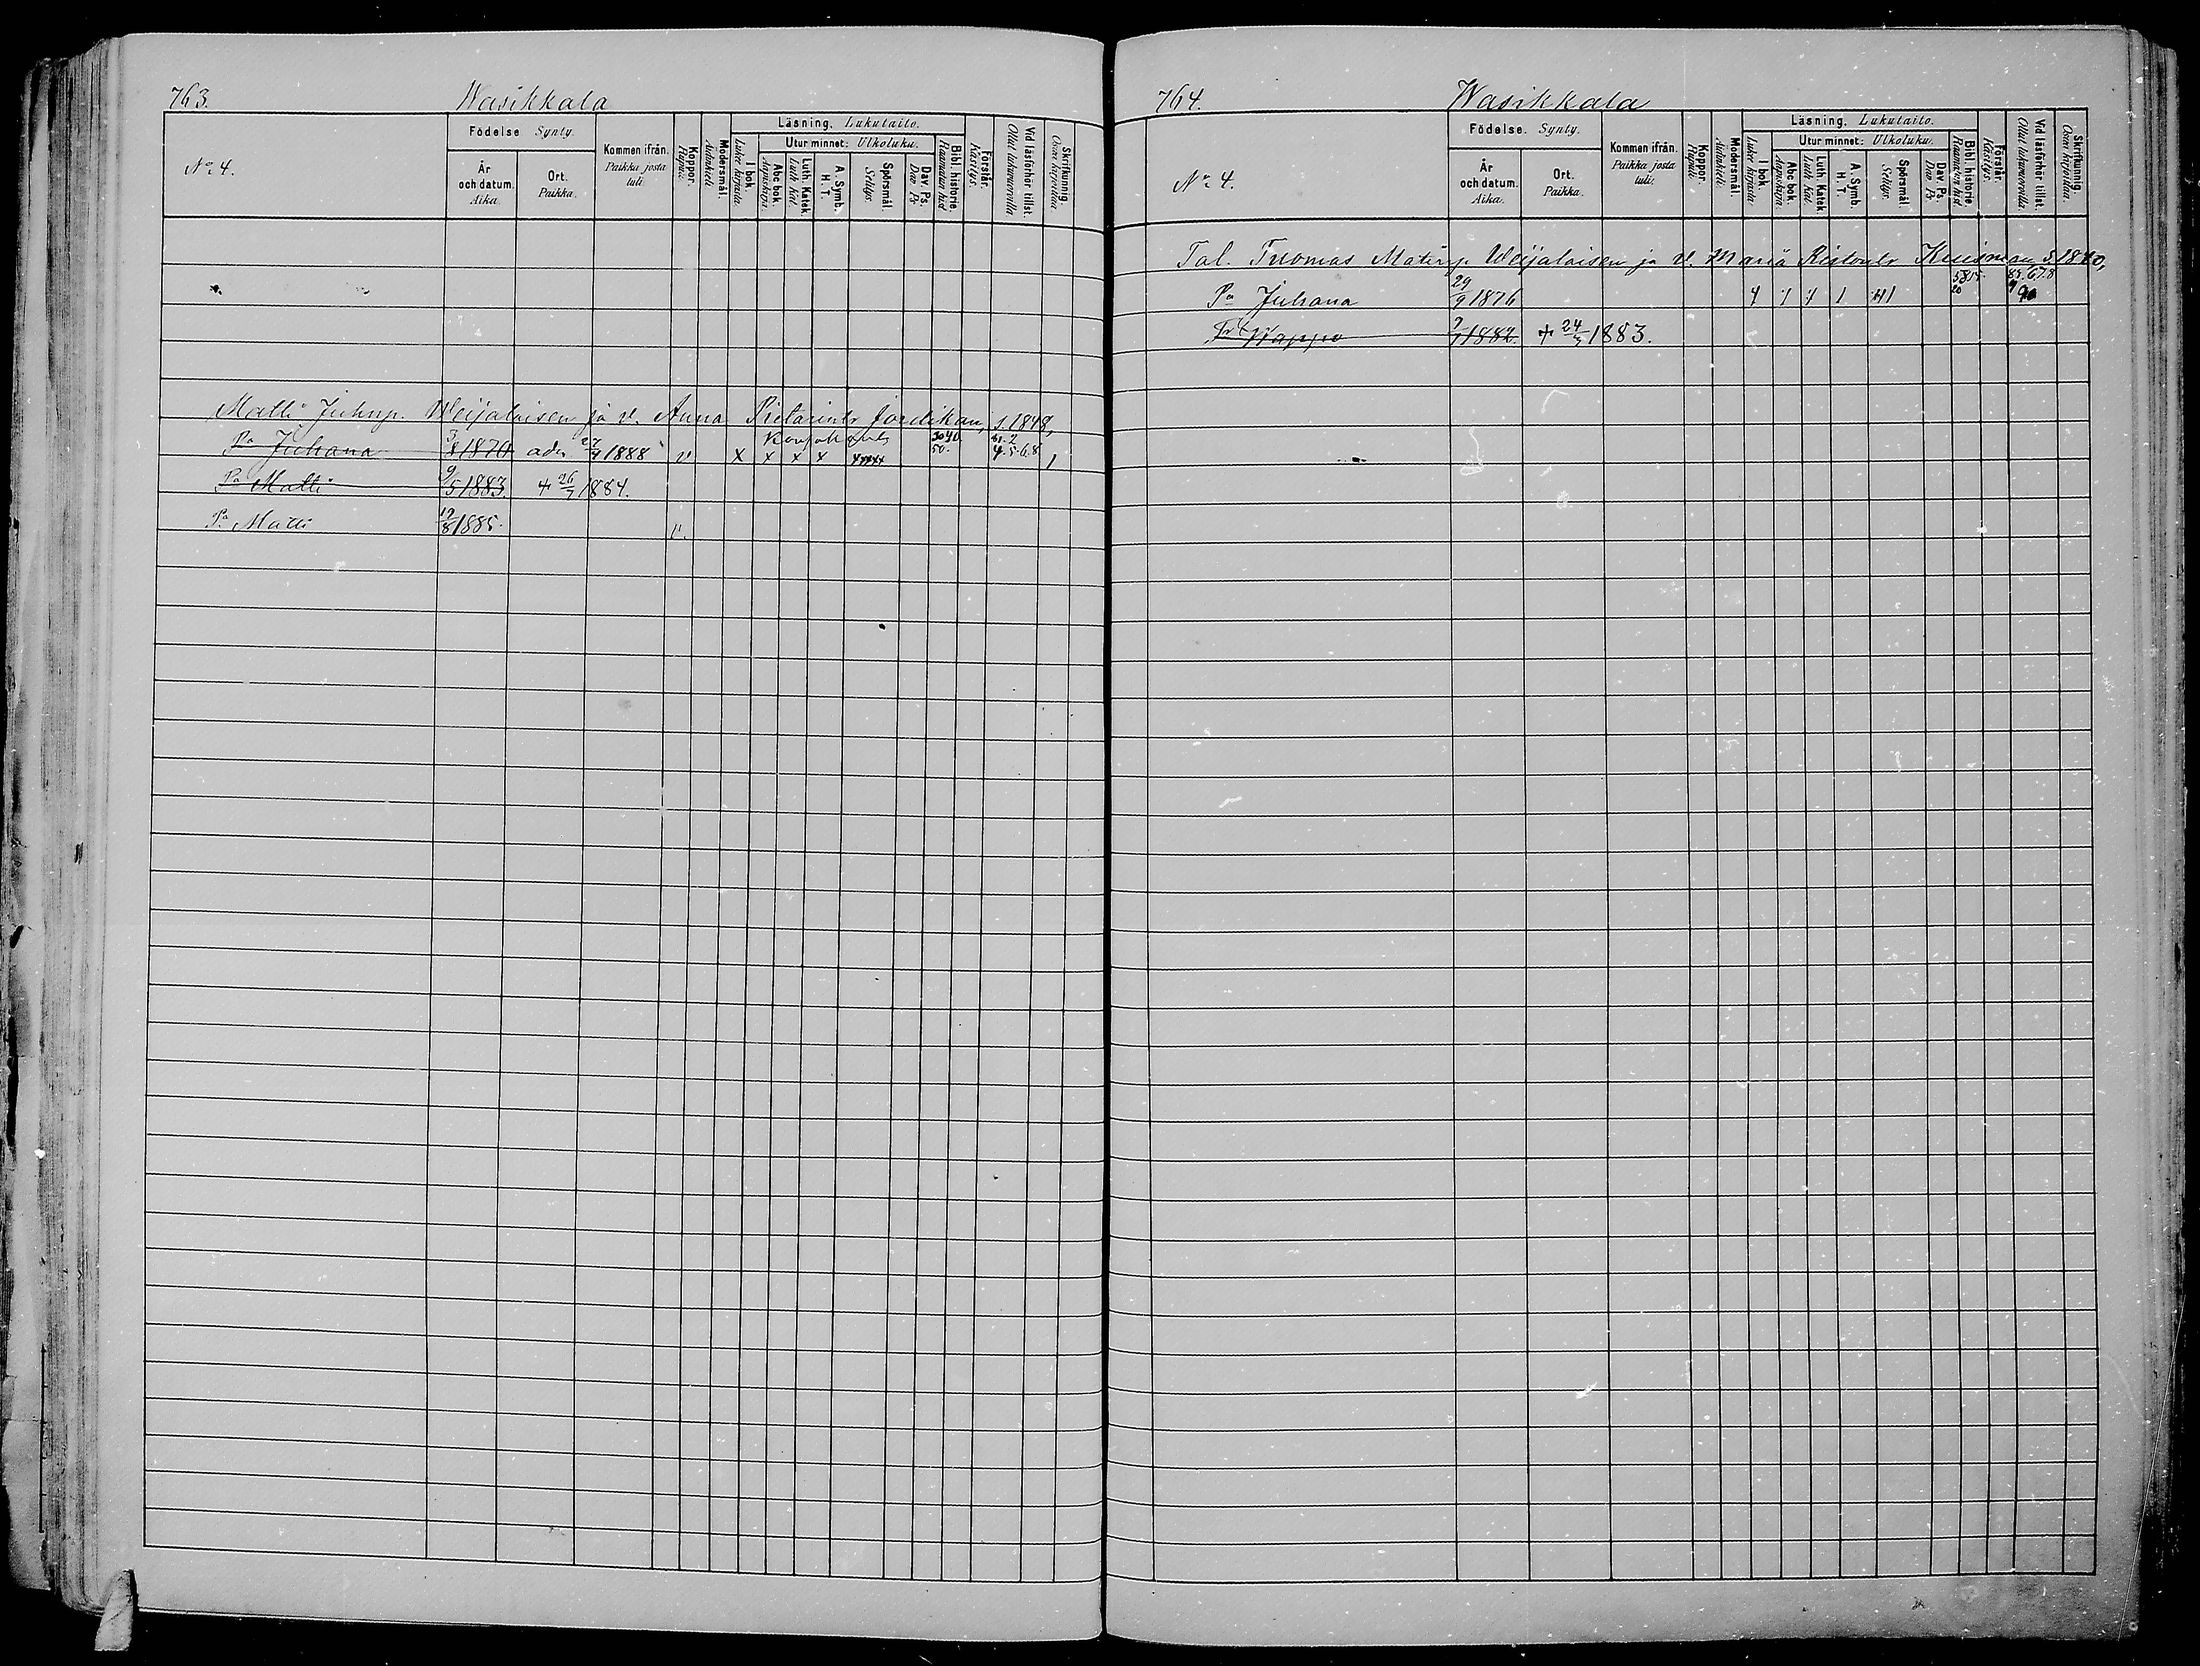 763. Wasikkala
Nº 4.
Födelse Synty.
År och datum. Aika.
Ort. Paikka.
Kommen ifrån. Paikka josta tuli.
Koppor. Rupuli.
Modersmål. Äidinkieli.
Läsning. Lukutaito.
I bok. Lukee kirjasta.
Utur minnet: Ulkoluku.
Abc bok. Aapiskirja.
Luth. Katek. Luth. Kat.
A. Symb. H. T.
Spörsmål. Selitys.
Dav. Ps. Dav. Ps.
Bibl. historie. Raamatun hist.
Förstår. Käsitys.
Vid läsförhör tillst. Ollut lukuvuorolla
Skrifkunnig. Osaa kirjoittaa.
Matti Juhnp. Weijalaisen ja v. Anna Pietarintr s. 1848,
Pa Juhana 3/8 1870 27/4 1888 v x x x x xxxxx 30 40 50. 81. 2 4. 5. 6. 8 1
Pa Matti 9/5 1883. + 26/7 1884.
Pa Matti 19/8 1885. v.
764. Wasikkala
Nº 4.
Födelse. Synty.
År och datum. Aika.
Ort. Paikka.
Kommen ifrån. Paikka josta tuli.
Koppor. Rupuli.
Modersmål. Äidinkieli.
Läsning. Lukutaito.
I bok. Lukee kirjasta
Utur minnet: Ulkoluku.
Abc bok. Aapiskirja.
Luth. Katek Luth. Kat.
A. Symb. H. T.
Spörsmål. Selitys.
Dav. Ps. Dav. Ps
Bibl. historie Raamatun hist.
Förstår. Käsitys.
Vid läsförhör tillst. Ollut lukuvuorolla.
Skrifkunnig. Osaa kirjoittaa.
Tal. Tuomas Matinp. Weijalaisen ja v. Maria Ristontr Kuisman s. 1840,
Pa Juhana 29/9 1876
Tr Wappu 9/1 1882. + 24/3 1883.